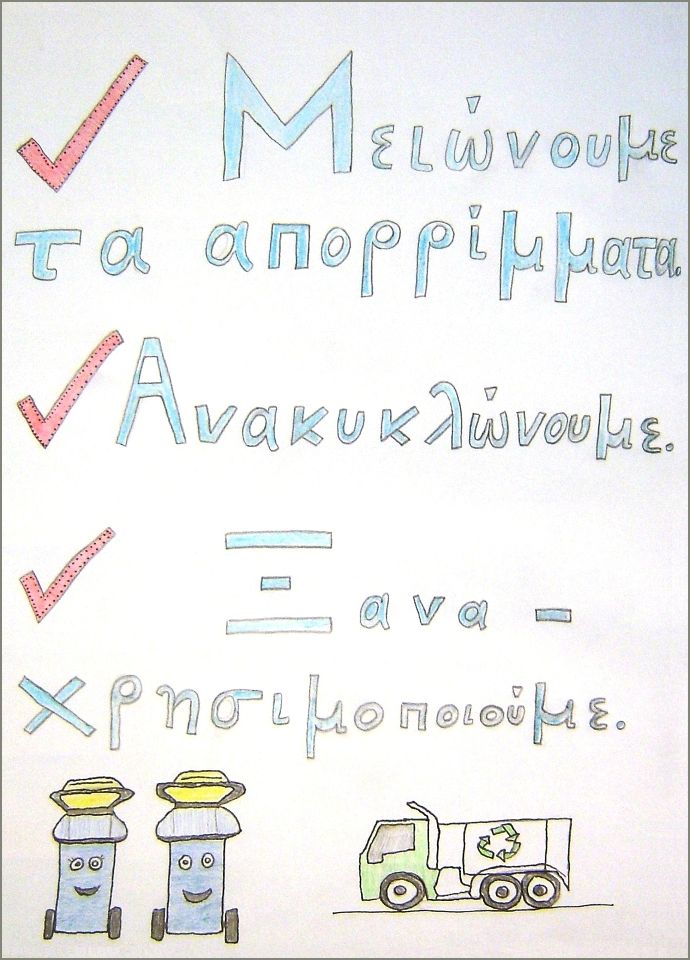 Μειώνουμε
τα απορρίμματα.
Ανακυκλώνουμε.
Ξανα -
χρησιμοποιούμε.